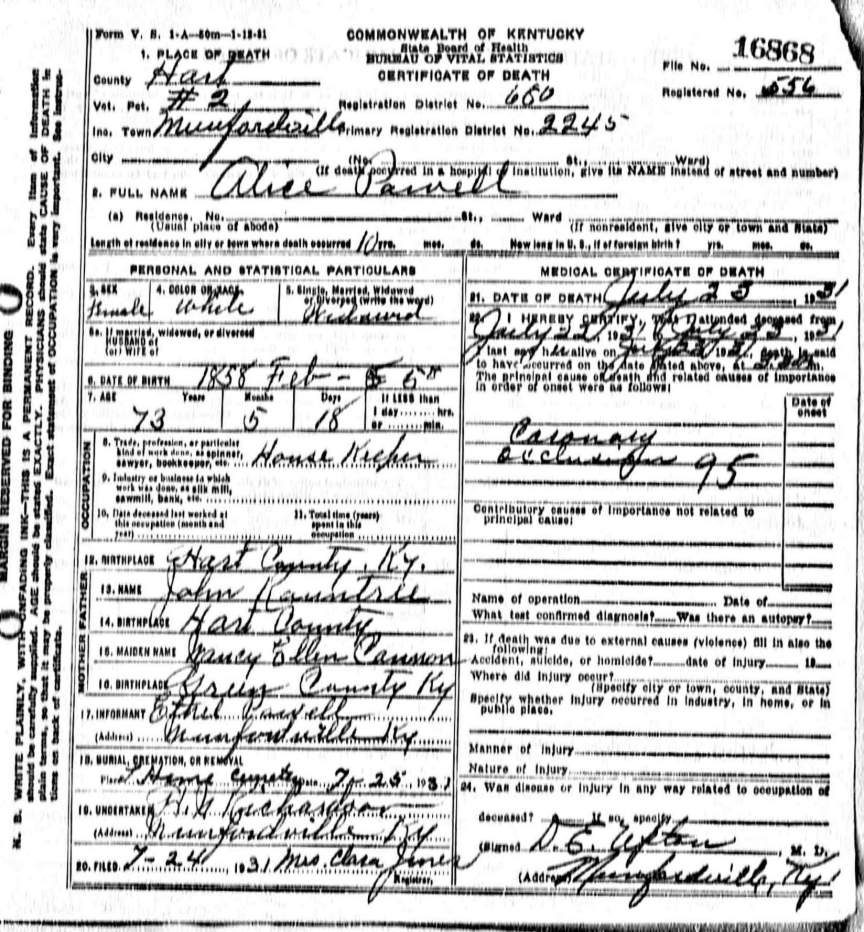 Form V. S. 1-A—50m—1-13-31
COMMONWEALTH OF KENTUCKY
State Board of Health
BUREAU OF VITAL STATISTICS
CERTIFICATE OF DEATH
File No. 16868
Registered No. 556
1. PLACE OF DEATH
County Hart
Vot. Pct. #2 Registration District No. 680
Inc. Town Munfordville Primary Registration District No. 2245
City (No. St., Ward)
(If death occurred in a hospital or institution, give its NAME instead of street and number)
2. FULL NAME Alice Powell
(a) Residence. No. St., Ward
(Usual place of abode) (If nonresident, give city or town and State)
Length of residence in city or town where death occurred 10 yrs. mos. ds. How long in U. S., if of foreign birth? yrs. mos. ds.
PERSONAL AND STATISTICAL PARTICULARS
3. SEX Female 4. COLOR OR RACE White 5. Single, Married, Widowed or Divorced (write the word) Widowed
5a. If married, widowed, or divorced
HUSBAND of
(or) WIFE of
6. DATE OF BIRTH 1858 Feb - 5th
7. AGE Years Months Days If LESS than
73 5 18 1 day hrs.
or min.
OCCUPATION
8. Trade, profession, or particular
kind of work done, as spinner,
sawyer, bookkeeper, etc. House Keeper
9. Industry or business in which
work was done, as silk mill,
sawmill, bank, etc.
10. Date deceased last worked at
this occupation (month and
year)
11. Total time (years)
spent in this
occupation
12. BIRTHPLACE Hart County, Ky.
FATHER
13. NAME John Rountree
14. BIRTHPLACE Hart County
MOTHER
15. MAIDEN NAME Nancy Ellen Cannon
16. BIRTHPLACE Green County Ky
17. INFORMANT Ethel Powell
(Address) Munfordville Ky
18. BURIAL, CREMATION, OR REMOVAL
Place Home Cemetery Date 7-25 1931
19. UNDERTAKER Richardson
(Address) Munfordville Ky
20. FILED 7-24, 1931 Mrs. Clara Jones
Registrar.
MEDICAL CERTIFICATE OF DEATH
21. DATE OF DEATH July 23, 1931
22. I HEREBY CERTIFY, That I attended deceased from
July 22, 1931, to July 23, 1931
I last saw h alive on July 1931, death is said
to have occurred on the date stated above, at m.
The principal cause of death and related causes of importance
in order of onset were as follows:
Date of
onset
Coronary
occlusion 95
Contributory causes of importance not related to
principal cause:
Name of operation Date of
What test confirmed diagnosis? Was there an autopsy?
23. If death was due to external causes (violence) fill in also the
following:
Accident, suicide, or homicide? date of injury 19
Where did injury occur?
(Specify city or town, county, and State)
Specify whether injury occurred in industry, in home, or in
public place.
Manner of injury
Nature of injury
24. Was disease or injury in any way related to occupation of
deceased? If so, specify
(Signed D. E. Upton, M. D.
(Address) Munfordville, Ky
MARGIN RESERVED FOR BINDING
N. B. WRITE PLAINLY, WITH UNFADING INK—THIS IS A PERMANENT RECORD. Every item of information
should be carefully supplied. AGE should be stated EXACTLY. PHYSICIANS should state CAUSE OF DEATH in
plain terms, so that it may be properly classified. Exact statement of OCCUPATION is very important. See instruc-
tions on back of certificate.